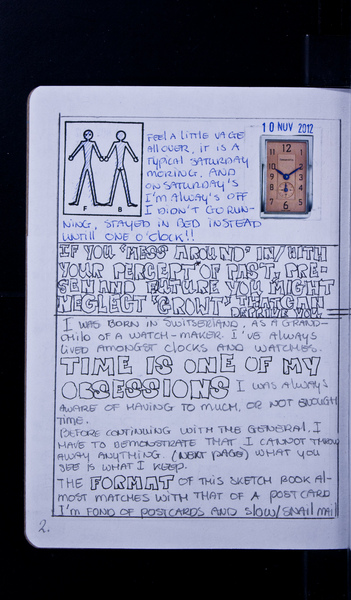 10 NOV 2012
FEEL A LITTLE VAGE
ALL OVER, IT IS A
TYPICAL SATURDAY
MORING. AND
ON SATURDAY'S
I'M ALWAY'S OFF
I DIDN'T GO RUN-
NING, STAYED IN BED INSTEAD
UNTILL ONE O'CLOCK!!
F B
12
6
IF YOU 'MESS AROUND' IN/WITH
YOUR PERCEPT OF PAST, PRE-
SEN AND FUTURE YOU MIGHT
NEGLECT 'GROWT' THAT CAN
DEPRIVE YOU.
I WAS BORN IN SWITSERLAND, AS A GRAND-
CHILD OF A WATCH-MAKER. I'VE ALWAYS
LIVED AMONGST CLOCKS AND WATCHES.
TIME IS ONE OF MY
OBSESSIONS I WAS ALWAYS
AWARE OF HAVING TO MUCH, OR NOT ENOUGH
TIME.
BEFORE CONTINUING WITH THE GENERAL, I
HAVE TO DEMONSTRATE THAT I CANNOT THROW
AWAY ANYTHING. (NEXT PAGE) WHAT YOU
SEE IS WHAT I KEEP.
THE FORMAT OF THIS SKETCH BOOK AL-
MOST MATCHES WITH THAT OF A POSTCARD
I'M FOND OF POSTCARDS AND SLOW/SNAIL MAIL
2.